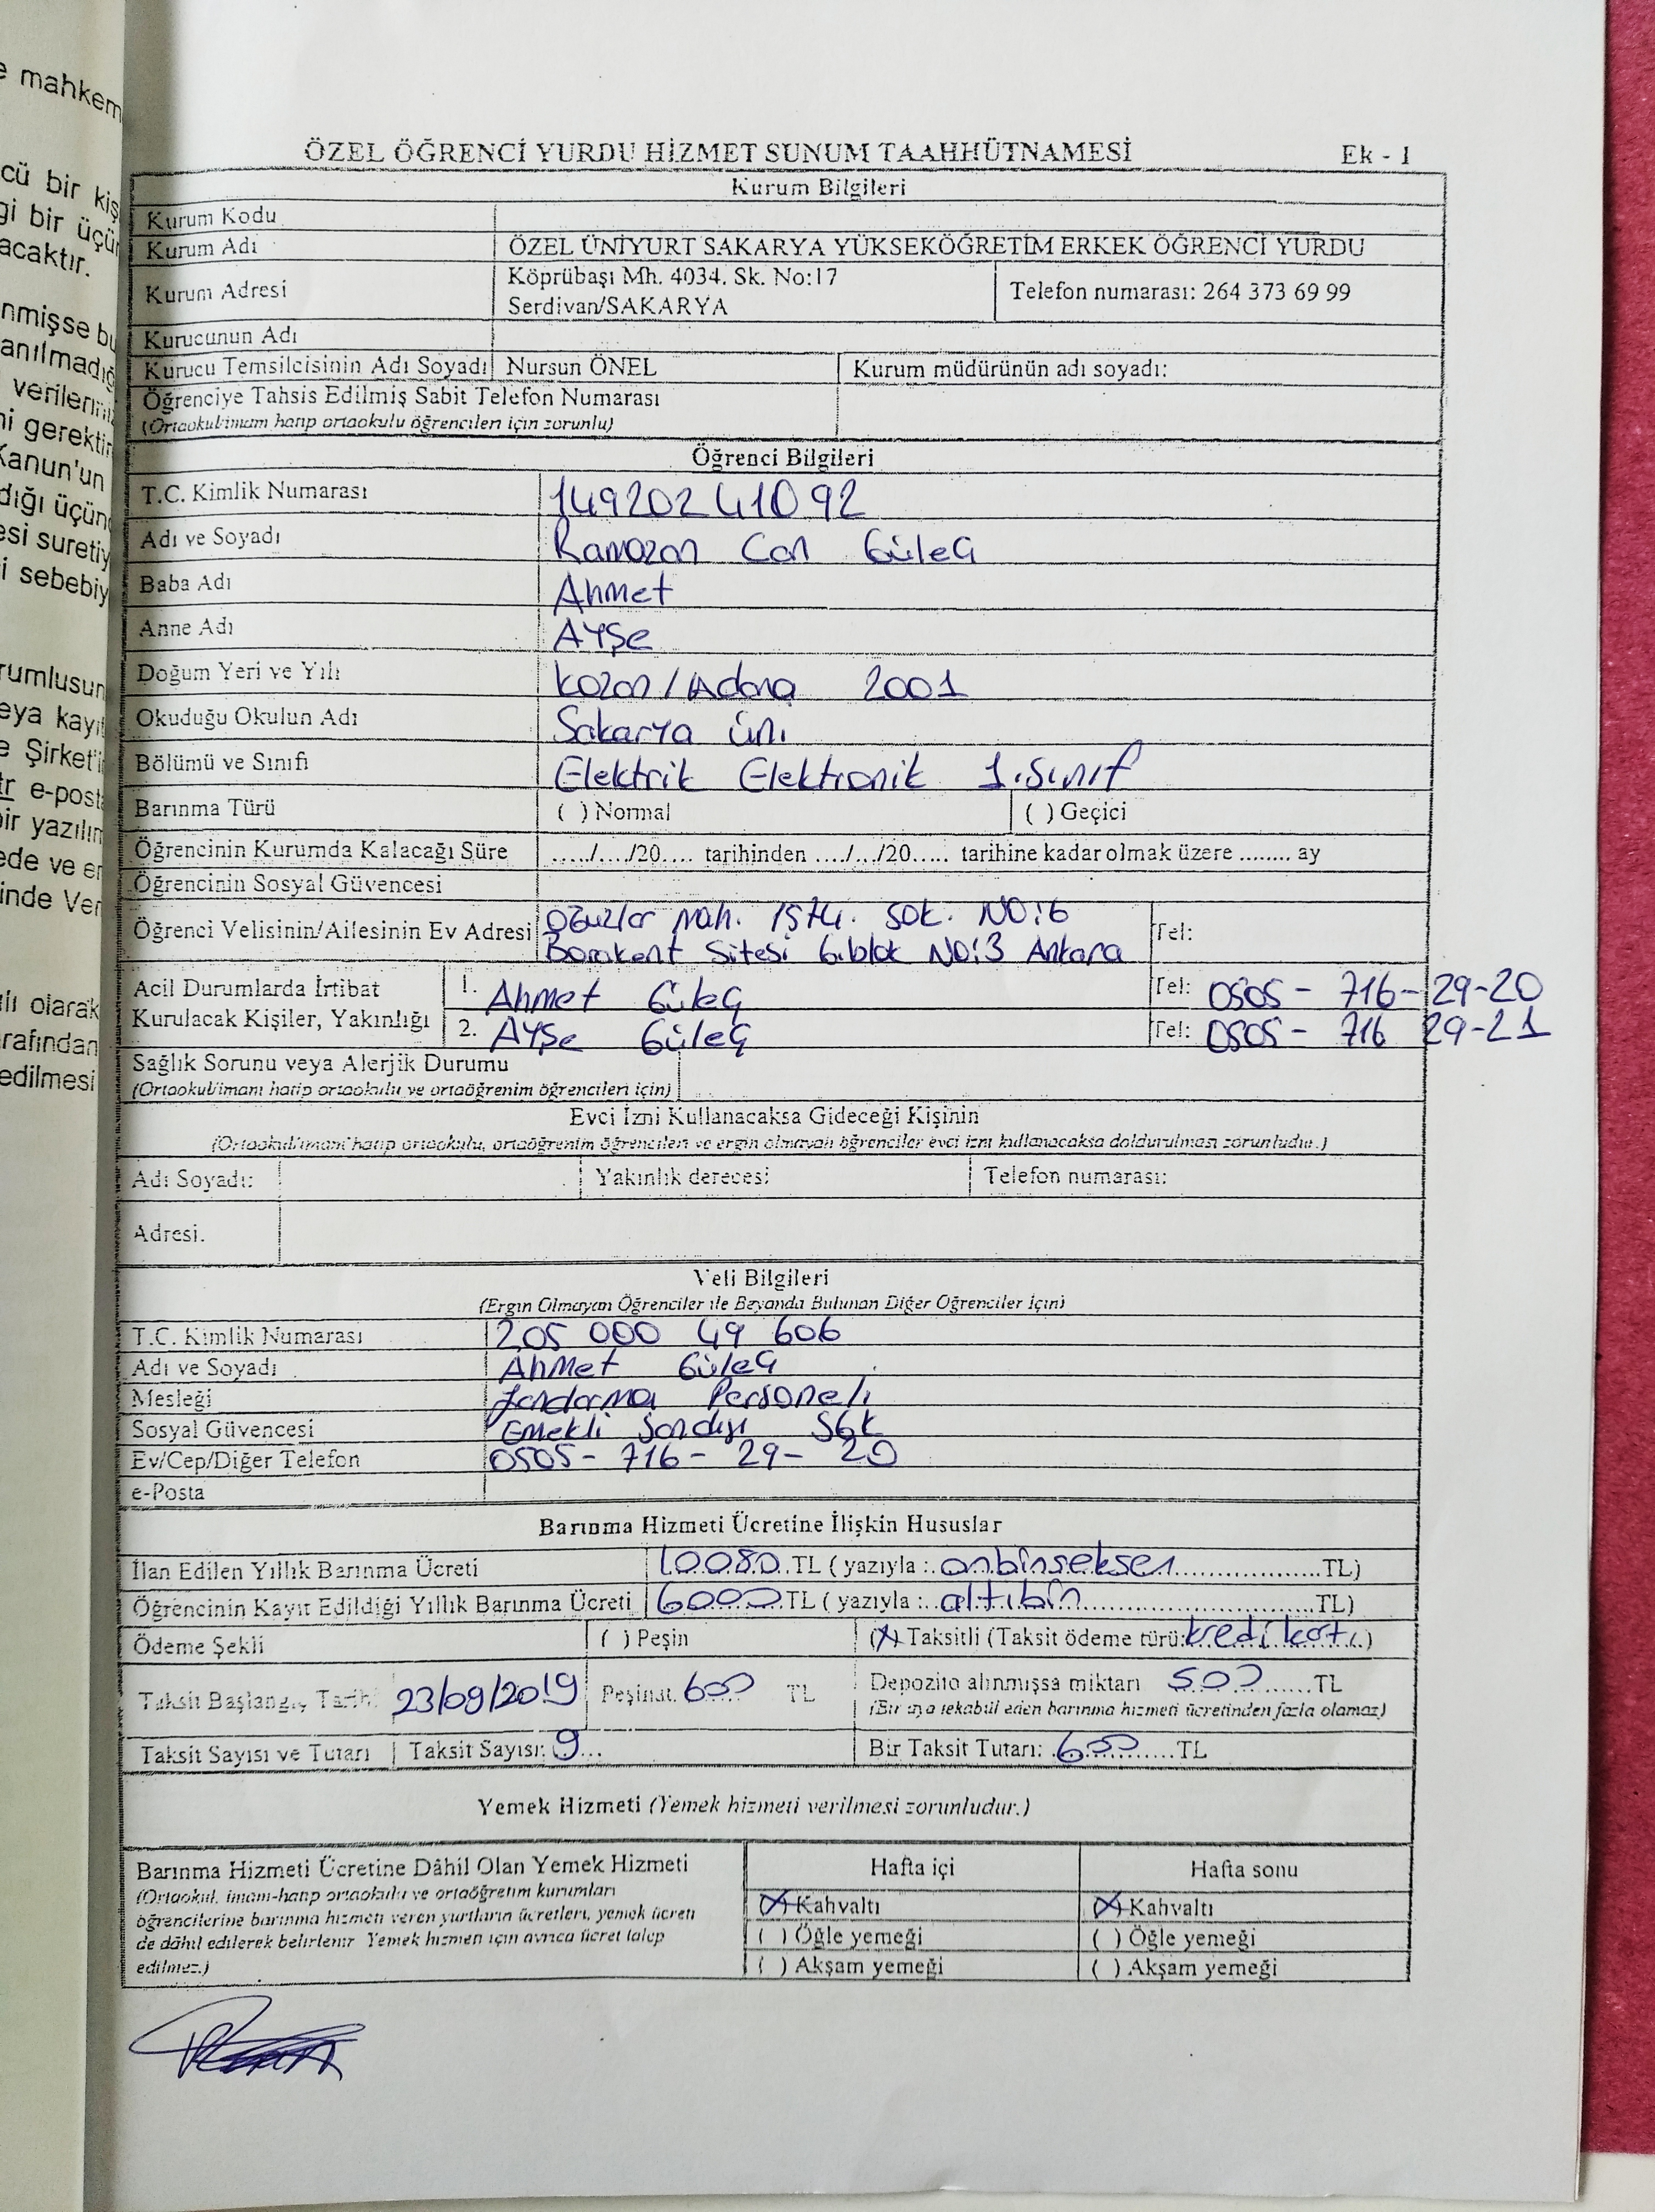 e mahkem
cü bir kiş
gi bir üçün
acaktır.
nmişse bu
anılmadığ
verilerini
ni gerektir
Kanun'un
dığı üçün
esi suretiy
i sebebiy
rumlusun
eya kayıt
e Şirket'i
tr e-post
bir yazılım
ede ve er
inde Ver
ili olarak
rafından
edilmesi
ÖZEL ÖĞRENCİ YURDU HİZMET SUNUM TAAHHÜTNAMESİ Ek - 1
Kurum Bilgileri
Kurum Kodu
Kurum Adı ÖZEL ÜNİYURT SAKARYA YÜKSEKÖĞRETİM ERKEK ÖĞRENCİ YURDU
Kurum Adresi Köprübaşı Mh. 4034. Sk. No:17
Serdivan/SAKARYA Telefon numarası: 264 373 69 99
Kurucunun Adı
Kurucu Temsilcisinin Adı Soyadı Nursun ÖNEL Kurum müdürünün adı soyadı:
Öğrenciye Tahsis Edilmiş Sabit Telefon Numarası
(Ortaokul/imam hatip ortaokulu öğrencileri için zorunlu)
Öğrenci Bilgileri
T.C. Kimlik Numarası 14920241092
Adı ve Soyadı Ramazan Can Güleç
Baba Adı Ahmet
Anne Adı Ayşe
Doğum Yeri ve Yılı Kozan / Adana 2001
Okuduğu Okulun Adı Sakarya Üni.
Bölümü ve Sınıfı Elektrik Elektronik 1.Sınıf
Barınma Türü ( ) Normal ( ) Geçici
Öğrencinin Kurumda Kalacağı Süre ...../..../20.... tarihinden ..../.../20..... tarihine kadar olmak üzere ........ ay
Öğrencinin Sosyal Güvencesi
Öğrenci Velisinin/Ailesinin Ev Adresi Oğuzlar Mah. Sok. NO:6
Sitesi 6.blok NO:3 Ankara Tel:
Acil Durumlarda İrtibat 1. Ahmet Güleç Tel: 0505 - 716 - 29-20
Kurulacak Kişiler, Yakınlığı 2. Ayşe Güleç Tel: 0505 - 716 29-21
Sağlık Sorunu veya Alerjik Durumu
(Ortaokul/imam hatip ortaokulu ve ortaöğrenim öğrencileri için)
Evci İzni Kullanacaksa Gideceği Kişinin
(Ortaokul/imam hatip ortaokulu, ortaöğrenim öğrencileri ve ergin olmayan öğrenciler evci izni kullanacaksa doldurulması zorunludur.)
Adı Soyadı: Yakınlık derecesi: Telefon numarası:
Adresi.
Veli Bilgileri
(Ergin Olmayan Öğrenciler ile Beyanda Bulunan Diğer Öğrenciler İçin)
T.C. Kimlik Numarası 205 000 49 606
Adı ve Soyadı Ahmet Güleç
Mesleği Jandarma Personeli
Sosyal Güvencesi Emekli Sandığı SGK
Ev/Cep/Diğer Telefon 0505 - 716 - 29 - 20
e-Posta
Barınma Hizmeti Ücretine İlişkin Hususlar
İlan Edilen Yıllık Barınma Ücreti 10080 TL ( yazıyla : onbinseksen TL)
Öğrencinin Kayıt Edildiği Yıllık Barınma Ücreti 6000 TL ( yazıyla : altıbin TL)
Ödeme Şekli ( ) Peşin (X) Taksitli (Taksit ödeme türü: kredi kartı)
Taksit Başlangıç Tarihi 23/09/2019 Peşinat. 600 TL Depozito alınmışsa miktarı 500 TL
(Bir aya tekabül eden barınma hizmeti ücretinden fazla olamaz)
Taksit Sayısı ve Tutarı Taksit Sayısı: 9 Bir Taksit Tutarı: 600 TL
Yemek Hizmeti (Yemek hizmeti verilmesi zorunludur.)
Barınma Hizmeti Ücretine Dâhil Olan Yemek Hizmeti Hafta içi Hafta sonu
(Ortaokul, imam-hatip ortaokulu ve ortaöğretim kurumları
öğrencilerine barınma hizmeti veren yurtların ücretleri, yemek ücreti
de dâhil edilerek belirlenir. Yemek hizmeti için ayrıca ücret talep
edilmez.)
(X) Kahvaltı (X) Kahvaltı
( ) Öğle yemeği ( ) Öğle yemeği
( ) Akşam yemeği ( ) Akşam yemeği